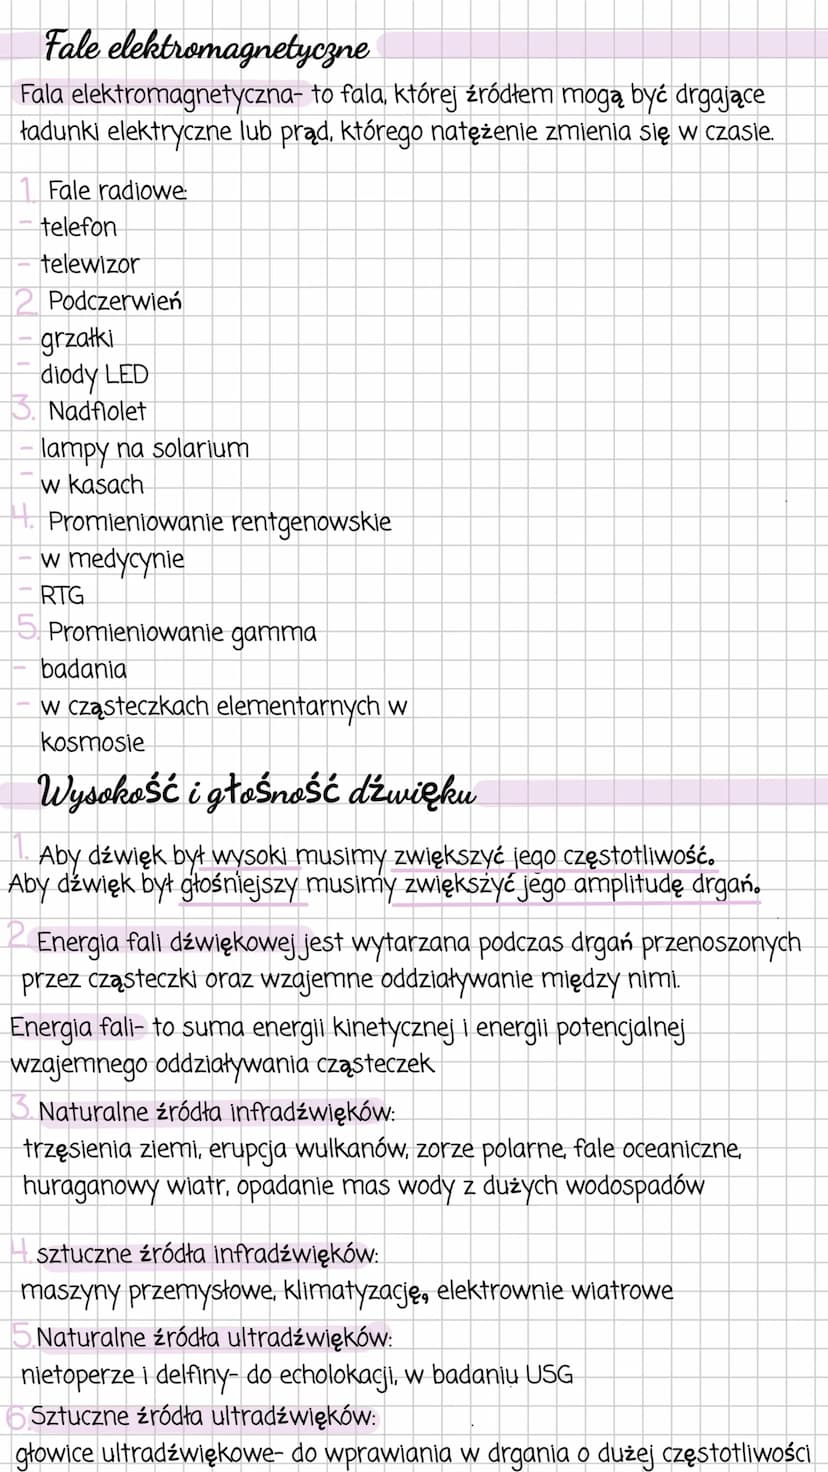 Fale elektromagnetyczne
Fala elektromagnetyczna- to fala, której źródłem mogą być drgające
ładunki elektryczne lub prąd, którego natężenie zmienia się w czasie.
1. Fale radiowe:
- telefon
- telewizor
2 Podczerwień
- grzałki
- diody LED
3. Nadfiolet
- lampy na solarium
- w kasach
4. Promieniowanie rentgenowskie
- w medycynie
- RTG
5. Promieniowanie gamma
- badania
- w cząsteczkach elementarnych w
kosmosie
Wysokość i głośność dźwięku
1. Aby dźwięk był wysoki musimy zwiększyć jego częstotliwość.
Aby dźwięk był głośniejszy musimy zwiększyć jego amplitudę drgań.
2. Energia fali dźwiękowej jest wytarzana podczas drgań przenoszonych
przez cząsteczki oraz wzajemne oddziaływanie między nimi.
Energia fali- to suma energii kinetycznej i energii potencjalnej
wzajemnego oddziaływania cząsteczek
3. Naturalne źródła infradźwięków:
trzęsienia ziemi, erupcja wulkanów, zorze polarne, fale oceaniczne,
huraganowy wiatr, opadanie mas wody z dużych wodospadów
4. sztuczne źródła infradźwięków:
maszyny przemysłowe, klimatyzację, elektrownie wiatrowe
5. Naturalne źródła ultradźwięków:
nietoperze i delfiny- do echolokacji, w badaniu USG
6. Sztuczne źródła ultradźwięków:
głowice ultradźwiękowe- do wprawiania w drgania o dużej częstotliwości